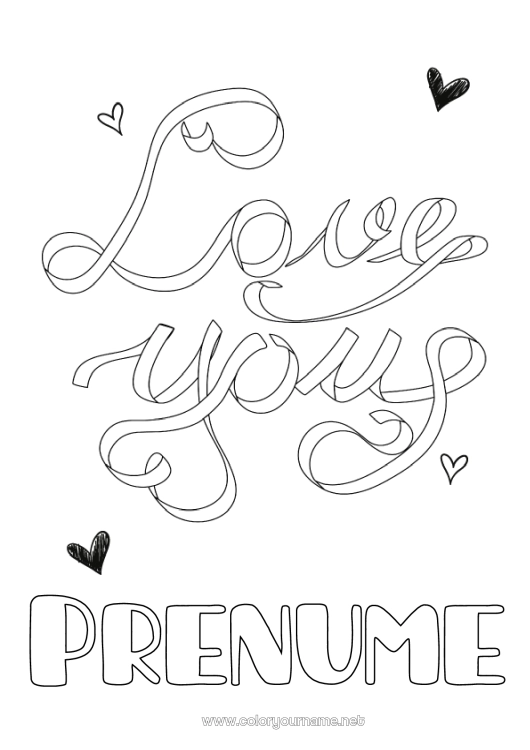 Love
you
PRENUME
www.coloryourname.net